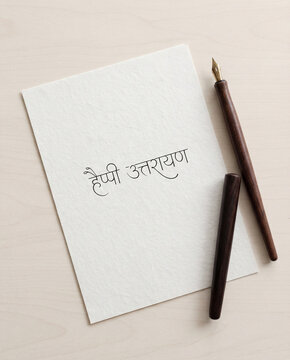 हैप्पी उत्तरायण